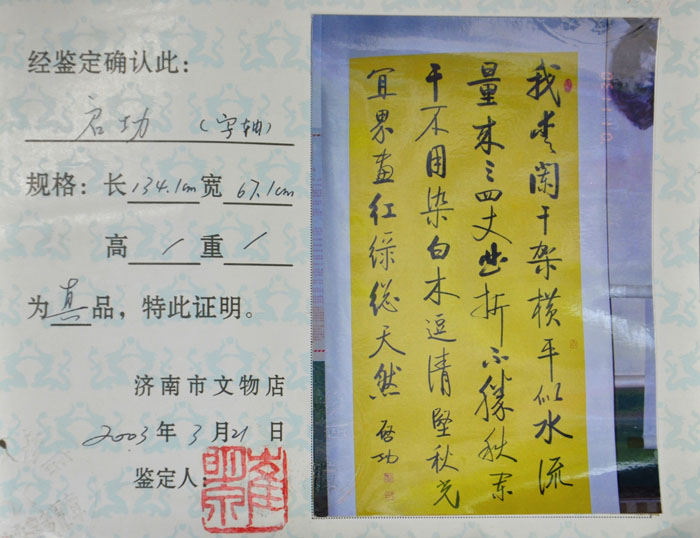 经鉴定确认此：
启功 （字轴）
规格：长134.1cm宽67.1cm
高/重/
为真品，特此证明。
济南市文物店
2003年3月21日
鉴定人：
崔明泉
我爱阑干架横平似水流
量来三四丈曲折不胜秋阑
干不用染白木逗清坚秋光
宜界画红绿总天然 启功